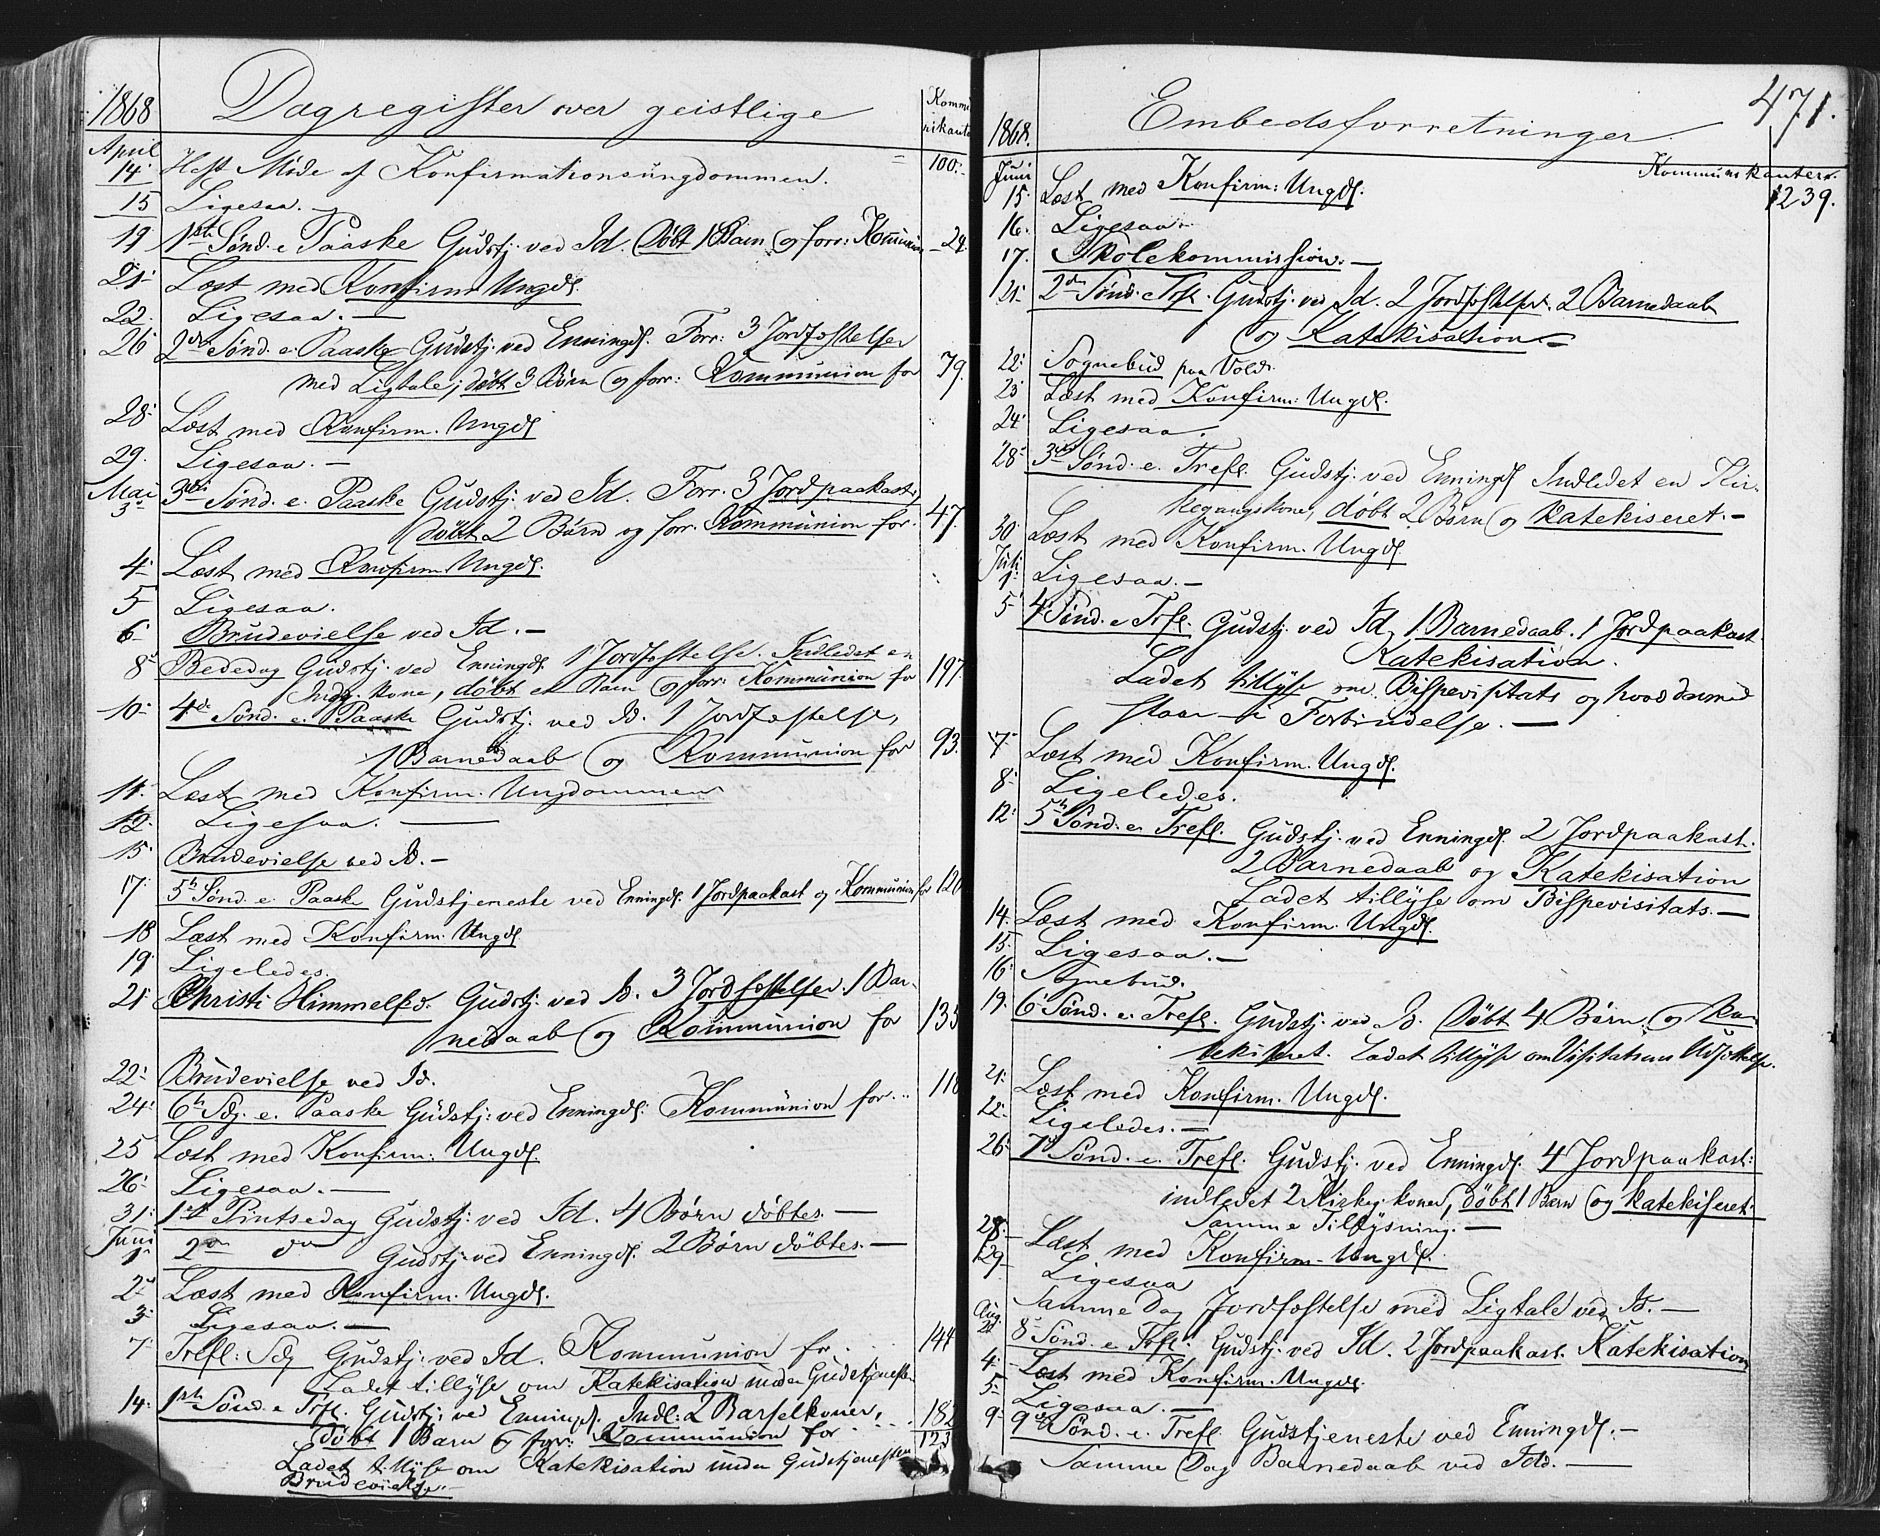 1868 Dagregister over geistlige Kommu
nikante
April
14. Holdt Møde af Konfirmationsungdommen. = 100.-
15 Ligesaa.-
19 1ste Sønd. e. Paaske Gudstj. ved Id. Døbt 1 Barn og forr: Kommunion - 24.
21. Læst med Konfirm. Ungd.
22. Ligesaa.-
26. 2den Sønd. e. Paaske Gudstj. ved Enningd. Forr: 3 Jordfæstelser
med Ligtale, døbt 3 Børn og forr: Kommunion for 79.
28. Læst med Konfirm. Ungd.
29. Ligesaa.-
Mai
3 3die Sønd. e. Paaske Gudstj. ved Id. Forr. 3 Jordpaakast.,
døbt 2 Børn og forr. Kommunion for. 47.
4. Læst med Konfirm. Ungd.
5 Ligesaa.
6 Brudevielse ved Id.-
8. Bededag Gudstj. ved Enningd. 1 Jordfæstelse. Indledet en
Kone, døbt et Barn og forr: Kommunion for 197
10. 4de Sønd. e. Paaske Gudstj. ved Id. 1 Jordfæstelse,
1 Barnedaab og Kommunion for 93.
11. Læst med Konfirm. Ungdommen
12. Ligesaa.-
15 Brudevielse ved Id.-
17. 5te Sønd. e. Paaske Gudstjeneste ved Enningd. 1 Jordpaakast og Kommunion for 120
18 Læst med Konfirm. Ungd.
19. Ligeledes.
21. Christi Himmelfd. Gudstj. ved Id. 3 Jordfæstelser. 1 Bar-
nedaab og Kommunion for 135
22. Brudevielse ved Id.
24. 6te Sdg. e. Paaske Gudstj. ved Enningd. Kommunion for.. 118
25 Læst med Konfirm. Ungd.
26. Ligesaa.-
31. 1ste Pintsedag Gudstj. ved Id. 4 Børn døbtes.-
Juni
1. 2den do Gudstj. ved Enningd. 2 Børn døbtes.-
2. Læst med Konfirm. Ungd.
3. Ligesaa.-
7. Trefl. Sdg Gudstj. ved Id. Kommunion for. 144
Ladet tillyse om Katekisation under Gudstjenesten
14. 1ste Sønd. e Trfl. Gudstj. ved Enningd. Indl: 2 Barselkoner,
døbt 1 Barn & forr: Kommunion for 182
Ladet tillyse om Katekisation under Gudstjenesten 123
Brudevielse.-
471.
1868. Embedsforretninger.
Kommunikanter.
Juni
15. Læst med Konfirm: Ungd. 1239.
16. Ligesaa.
17. Skolekommission.-
21. 2den Sønd. e Trfl. Gudstj. ved Id. 2 Jordfæstelser. 2 Barnedaab
og Katekisation.-
22. Sognebud paa Vold.
23 Læst med Konfirm: Ungd.
24 Ligesaa.
28 3die Sønd. e. Trefl. Gudstj. ved Enningd Indledet en Kir-
kegangskone, døbt 2 Børn og katekiseret.-
30 Læst med Konfirm. Ungd.
Juli
1. Ligesaa.-
5 4. Sønd. e Trfl. Gudstj. ved Id, 1 Barnedaab. 1 Jordpaakast.
Katekisation.
Ladet tillyse om Bispevisitats og hvad dermed
staar i Forbindelse.-
7. Læst med Konfirm. Ungd.
8. Ligeledes.
12. 5te Sønd. e. Trefl. Gudstj. ved Enningd. 2 Jordpaakast.
2 Barnedaab og Katekisation
Ladet tillyse om Bispevisitats.-
14. Læst med Konfirm. Ungd.
15. Ligesaa.-
16. Sognebud.
19. 6te Sønd. e. Trefl. Gudstj. ved Id. Døbt 4 Børn og ka-
tekiseret. Ladet tillyse om Visitatsens Udsættelse.
21. Læst med Konfirm. Ungd.
22. Ligeledes.-
26. 7de Sønd. e. Trefl. Gudstj. ved Enningd. 4 Jordpaakast:
indledet 2 Kirkeg. koner, døbt 1 Barn og katekiseret.
Samme Tillysning.-
28. Læst med Konfirm. Ungd.
29. Ligesaa
Samme Dag Jordfæstelse med Ligtale ved Id.-
Aug.
2. 8de Sønd. e. Trfl. Gudstj. ved Id. 2 Jordpaakast. Katekisation
4. Læst med Konfirm. Ungd.
5. Ligesaa.-
9. 9de Sønd. e. Trefl. Gudstjeneste ved Enningd.-
Samme Dag Barnedaab ved Id.-